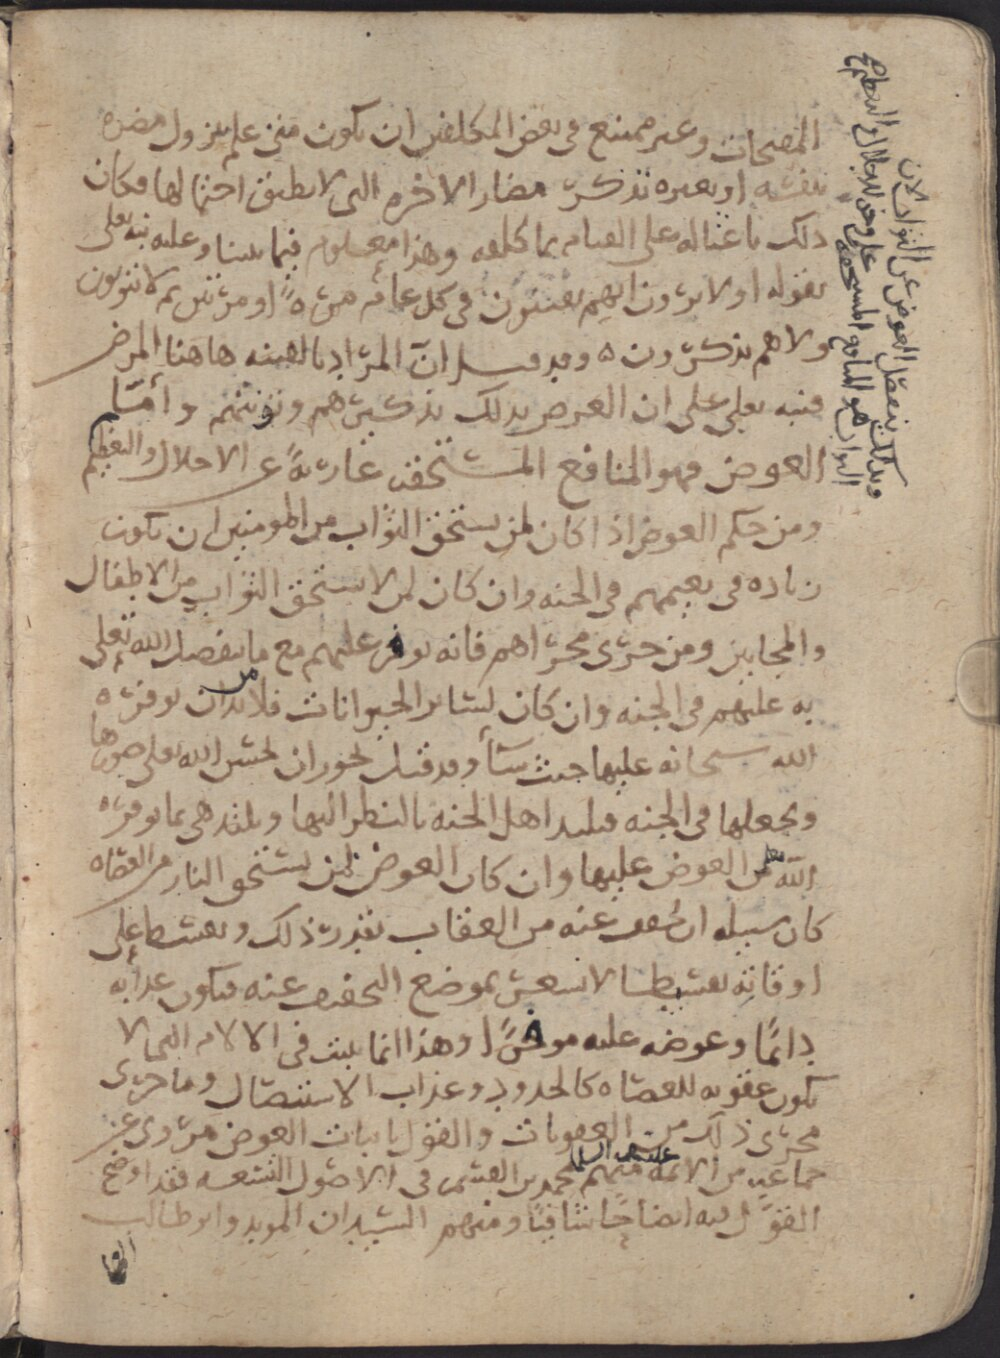 المقبحات وغير ممتنع في بعض المكلفين ان يكون متى علم بنزول مضره
بنفسه او بغيره تذكر مضار الاخره التي لا يطيق احتمالها فكان
ذلك باعثا له على القيام بما كلفه وهذا معلوم فيما بيننا وعليه نبه تعلى
بقوله اولا يرون انهم يفتنون في كل عام مرة او مرتين ثم لا يتوبون
ولا هم يذكرون ه وقد قيل ان المراد بالفتنه هاهنا المرض
فنبه تعلى على ان الغرض بذلك تذكيرهم وتوبتهم وأمّا
العوض فهو المنافع المستحقه عاريةً عن الاجلال والتعظيم
ومن حكم العوض اذا كان لمن يستحق الثواب من المومنين ان يكون
زياده في نعيمهم في الجنه وان كان لمن لا يستحق الثواب من الاطفال
والمجانين ومن جرى مجراهم فانه يوفر عليهم مع ما يتفضل الله تعلى
به عليهم في الجنه وان كان لسائر الحيوانات فلا بد من ان يوفره
الله سبحانه عليها حيث شاء وقد قيل يجوز ان يحسن الله تعلى صورها
ويجعلها في الجنه فيلتذ اهل الجنه بالنظر اليها وتلتذ هي بما يوفره
الله تعلى من العوض عليها وان كان العوض لمن يستحق النار من العصاه
كان سبيله ان يخفف عنه من العقاب بقدر ذلك ويقسط على
اوقاته تقسيطا لا يشعر بموضع التخفيف عنه فيكون عذابه
دائمًا وعوضه عليه موفرًا وهذا انما يثبت في الالام التي لا
تكون عقوبه للعصاه كالحدود وعذاب الاستئصال وما جرى
مجرى ذلك من العقوبات والقول باثبات العوض مروي عن
جماعه من الائمه عليهم السلم منهم محمد بن القسم في الاصول التسعه فقد اوضح
القول فيه ايضاحًا شافيًا ومنهم السيدان المويد وابو طالب
وبذلك ينفصل العوض عن الثواب لان
الثواب هو المنافع المستحقه على وجه الاجلال والتعظيم